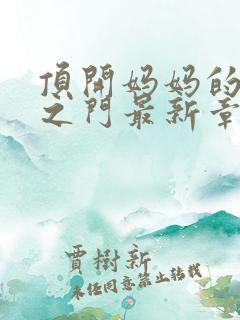 頂開妈妈的
之门最新章
賈樹新
未任同意禁止转载